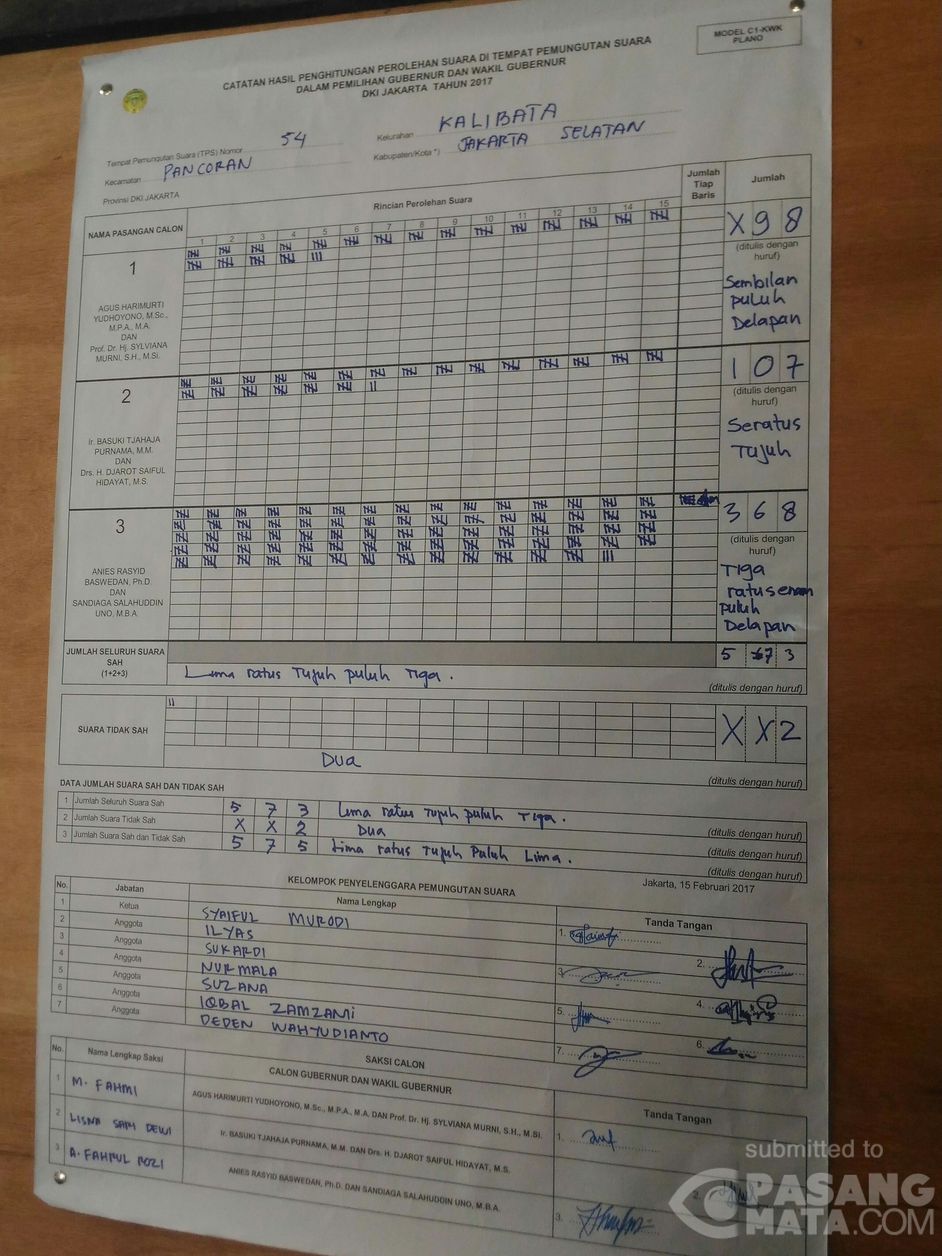 MODEL C1-KWK
PLANO
CATATAN HASIL PENGHITUNGAN PEROLEHAN SUARA DI TEMPAT PEMUNGUTAN SUARA
DALAM PEMILIHAN GUBERNUR DAN WAKIL GUBERNUR
DKI JAKARTA TAHUN 2017
Tempat Pemungutan Suara (TPS) Nomor 54 Kelurahan KALIBATA
Kecamatan PANCORAN Kabupaten/Kota *) JAKARTA SELATAN
Provinsi DKI JAKARTA
NAMA PASANGAN CALON Rincian Perolehan Suara Jumlah Tiap Baris Jumlah
1 2 3 4 5 6 7 8 9 10 11 12 13 14 15
1 X98
(ditulis dengan huruf)
AGUS HARIMURTI
YUDHOYONO, M.Sc.,
M.P.A., M.A.
DAN
Prof. Dr. Hj. SYLVIANA
MURNI, S.H., M.Si.
Sembilan
puluh
Delapan
2 107
(ditulis dengan huruf)
Ir. BASUKI TJAHAJA
PURNAMA, M.M.
DAN
Drs. H. DJAROT SAIFUL
HIDAYAT, M.S.
Seratus
Tujuh
3 368
(ditulis dengan huruf)
ANIES RASYID
BASWEDAN, Ph.D.
DAN
SANDIAGA SALAHUDDIN
UNO, M.B.A.
Tiga
ratus enam
puluh
Delapan
JUMLAH SELURUH SUARA
SAH
(1+2+3)
5 7 3
Lima ratus Tujuh puluh Tiga.
(ditulis dengan huruf)
SUARA TIDAK SAH X X 2
Dua
(ditulis dengan huruf)
DATA JUMLAH SUARA SAH DAN TIDAK SAH
1 Jumlah Seluruh Suara Sah 5 7 3 Lima ratus Tujuh puluh Tiga. (ditulis dengan huruf)
2 Jumlah Suara Tidak Sah X X 2 Dua (ditulis dengan huruf)
3 Jumlah Suara Sah dan Tidak Sah 5 7 5 Lima ratus Tujuh Puluh Lima. (ditulis dengan huruf)
Jakarta, 15 Februari 2017
KELOMPOK PENYELENGGARA PEMUNGUTAN SUARA
No. Jabatan Nama Lengkap Tanda Tangan
1 Ketua SYAIFUL MURODI 1.
2 Anggota ILYAS 2.
3 Anggota SUKARDI 3.
4 Anggota NURMALA 4.
5 Anggota SUZANA 5.
6 Anggota IQBAL ZAMZAMI 6.
7 Anggota DEDEN WAHYUDIANTO 7.
SAKSI CALON
No. Nama Lengkap Saksi CALON GUBERNUR DAN WAKIL GUBERNUR Tanda Tangan
1 M. FAHMI AGUS HARIMURTI YUDHOYONO, M.Sc., M.P.A., M.A. DAN Prof. Dr. Hj. SYLVIANA MURNI, S.H., M.Si. 1.
2 LISNA SARI DEWI Ir. BASUKI TJAHAJA PURNAMA, M.M. DAN Drs. H. DJAROT SAIFUL HIDAYAT, M.S. 2.
3 A. FAHRUL ROZI ANIES RASYID BASWEDAN, Ph.D. DAN SANDIAGA SALAHUDDIN UNO, M.B.A. 3.
submitted to
PASANG
MATA.COM